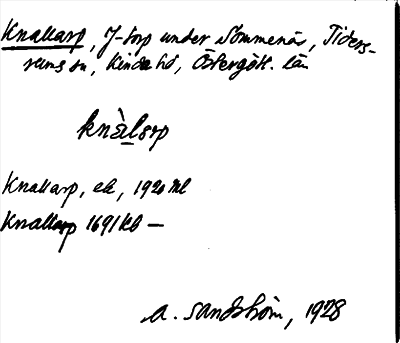 Knallarp, J-torp under Sommenäs, Tiders-
rums sn, Kinda hd, Östergötl. län
knàlarp
Knallarp, ek, 1920 Ml
Knallarp 1691 kb —
A. Sandström, 1928